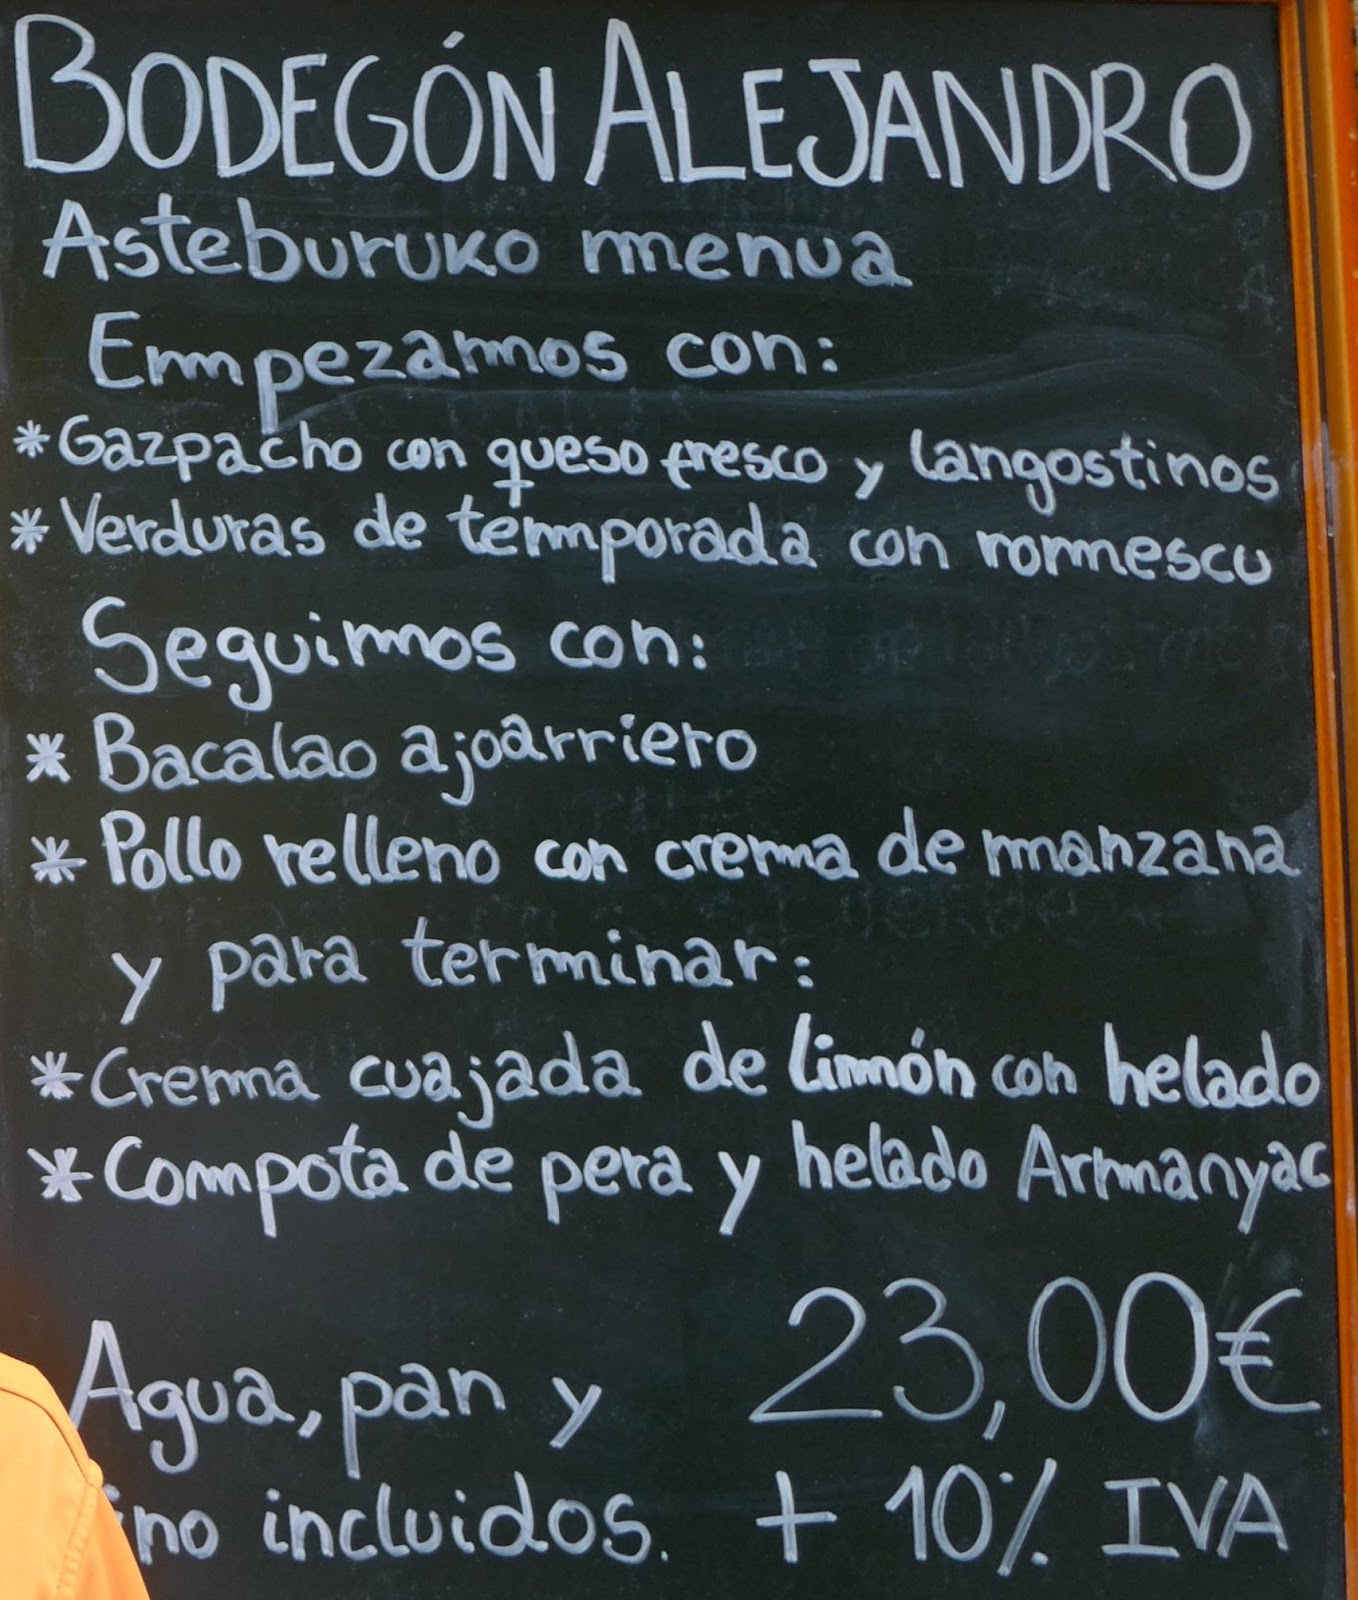 BODEGÓN ALEJANDRO
Asteburuko menua
Empezamos con:
* Gazpacho con queso fresco y langostinos
* Verduras de temporada con romescu
Seguimos con:
* Bacalao ajoarriero
* Pollo relleno con crema de manzana
y para terminar:
* Crema cuajada de limón con helado
* Compota de pera y helado Armanyac
23,00€
Agua, pan y
ino incluidos. + 10% IVA